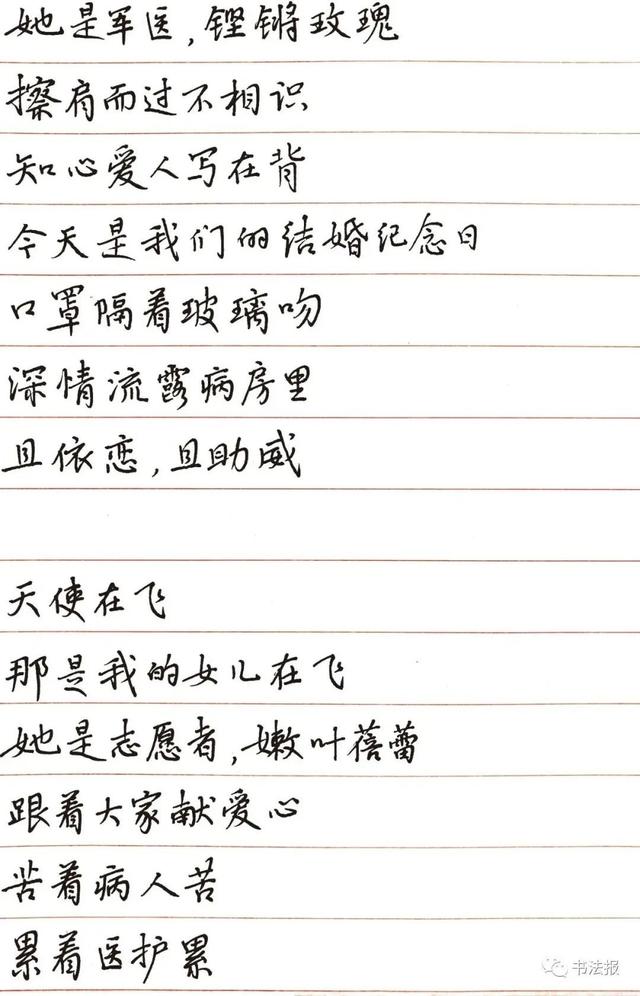 她是军医,铿锵玫瑰
擦肩而过不相识
知心爱人写在背
今天是我们的结婚纪念日
口罩隔着玻璃吻
深情流露病房里
且依恋,且助威
天使在飞
那是我的女儿在飞
她是志愿者,嫩叶蓓蕾
跟着大家献爱心
苦着病人苦
累着医护累
书法报